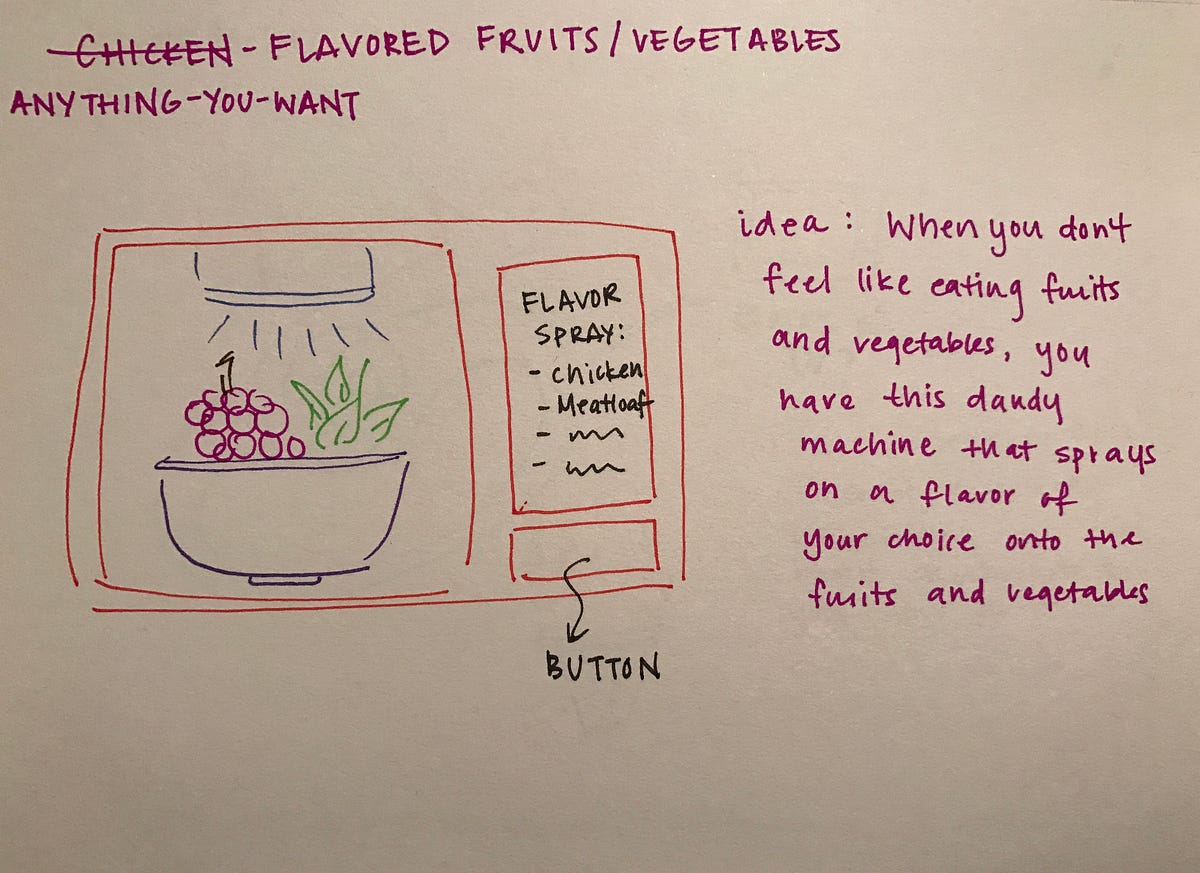 CHICKEN - FLAVORED FRUITS/VEGETABLES
ANYTHING-YOU-WANT
FLAVOR
SPRAY:
- chicken
- Meatloaf
-
-
BUTTON
idea: When you don't
feel like eating fruits
and vegetables, you
have this dandy
machine that sprays
on a flavor of
your choice onto the
fruits and vegetables